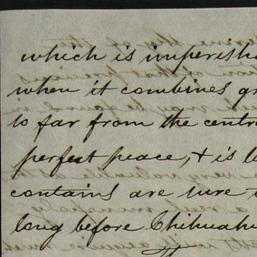 which is imperisha
when it combines gr
to far from the centr
perfect peace, & is b
contains are pure
long before Chihuahu